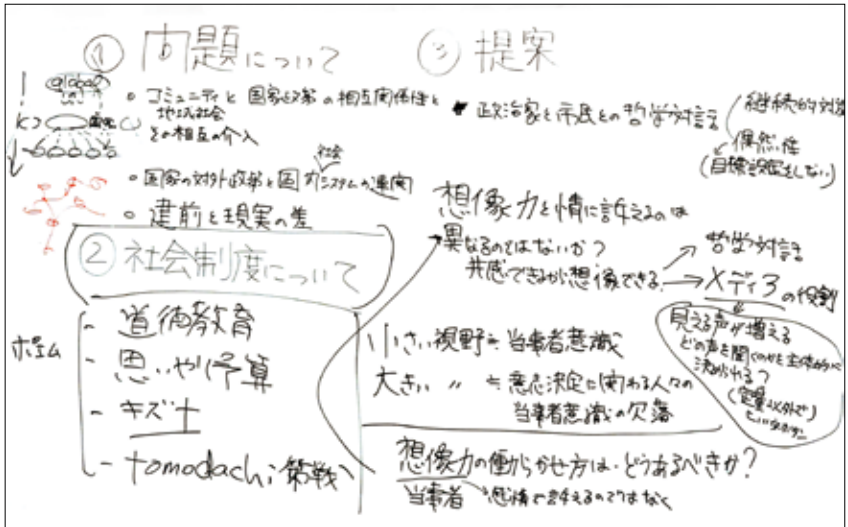 ① 問題について
○ コミュニティと国家政策の相互関係性と
地域社会
その相互の介入
社会
○ 国家の対外政策と国内システムの連関
○ 建前と現実の差
② 社会制度について
ポエム
- 道徳教育
- 思いやり予算
- キズナ
- tomodachi 作戦
③ 提案
政治家と市民との哲学対話
継続的対話
偶然性
(目標設定をしない)
想像力と情に訴えるのは
異なるのではないか?
共感できるから想像できる
→ 哲学対話
→ メディアの役割
見える声が増える
どの声を聞くのかを主体的に
決められる?
(定量以外で)
小さい視野 ≒ 当事者意識
大きい 〃 ≒ 意志決定に関わる人々の
当事者意識の欠落
想像力の働らかせ方は、どうあるべきか?
当事者 感情で訴えるのではなく